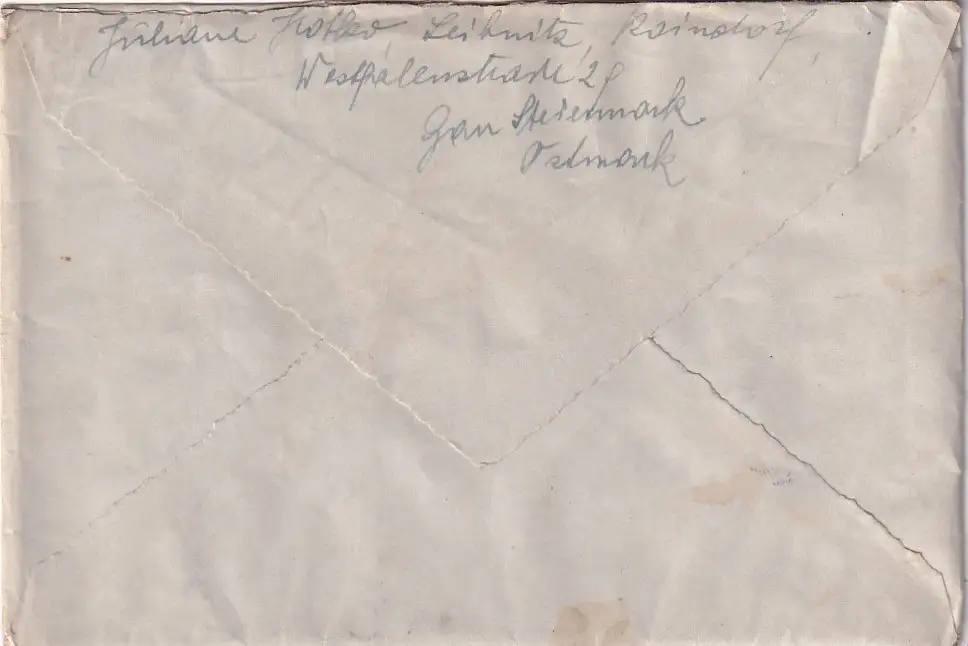 Juliane Hotko, Leibnitz, Kaindorf,
Westfalenstraße 29
Gau Steiermark
Ostmark